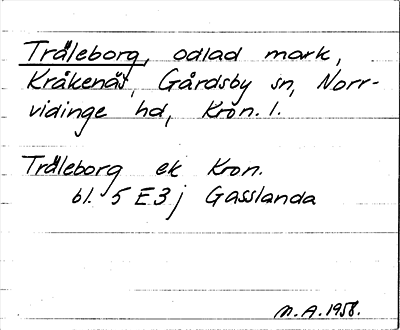 Träleborg, odlad mark,
Kråkenäs, Gårdsby sn, Norr-
vidinge hd, Kron. l.
Träleborg ek Kron.
bl. 5 E 3 j Gasslanda
M.A. 1958.